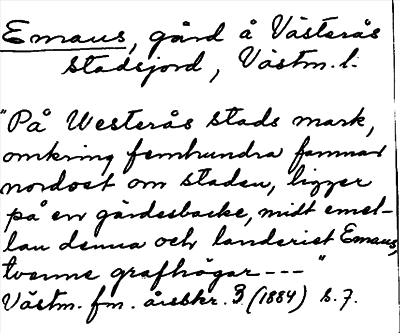 Emaus, gård å Västerås
stadsjord, Västm. l.
"På Westerås stads mark,
omkring femhundra famnar
nordost om staden, ligger
på en gärdesbacke, midt emel-
lan denna och landeriet Emaus,
tvenne grafhögar --- "
Västm. fm. årsskr. 3. (1884) s. 7.